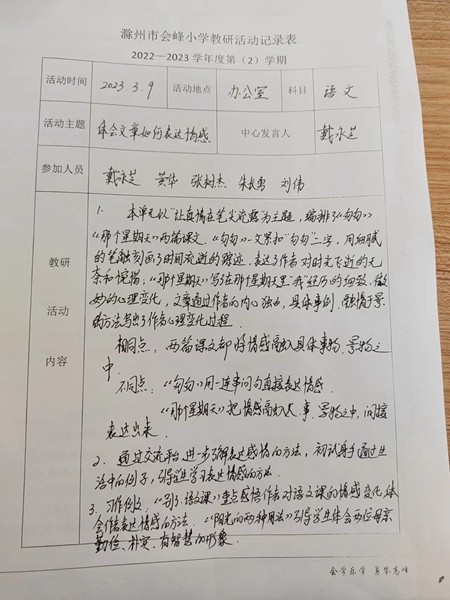 滁州市会峰小学教研活动记录表
2022—2023学年度第（2）学期
活动时间 2023.3.9 活动地点 办公室 科目 语文
活动主题 体会文章如何表达情感 中心发言人 戴永芝
参加人员 戴永芝 黄华 张树杰 朱长勇 刘伟
教研
活动
内容
1. 本单元以“让真情在笔尖流露”为主题，编排了《匆匆》
《那个星期天》两篇课文。《匆匆》一文紧扣“匆匆”二字，用细腻
的笔触刻画了时间流逝的踪迹，表达了作者对时光飞逝的无
奈和惋惜，《那个星期天》写了在那个星期天里“我”经历的细致、微
妙的心理变化，文章通过作者的内心独白，具体事例，融情于景
的方法写出了作者心理变化过程.
相同点：两篇课文都将情感融入具体事物、景物之
中.
不同点：《匆匆》用一连串问句直接表达情感.
《那个星期天》把情感融入人、事、景物之中，间接
表达出来.
2. 通过交流平台，进一步了解表达感情的方法，初试身手通过生
活中的例子，引导学生学习表达情感的方法.
3. 习作例文.《别了，语文课》重点感悟作者对语文课的情感变化，体
会作者表达情感的方法.《阳光的两种用法》引导学生体会两位母亲
勤俭、朴实、有智慧的形象.
会学乐学 勇攀高峰